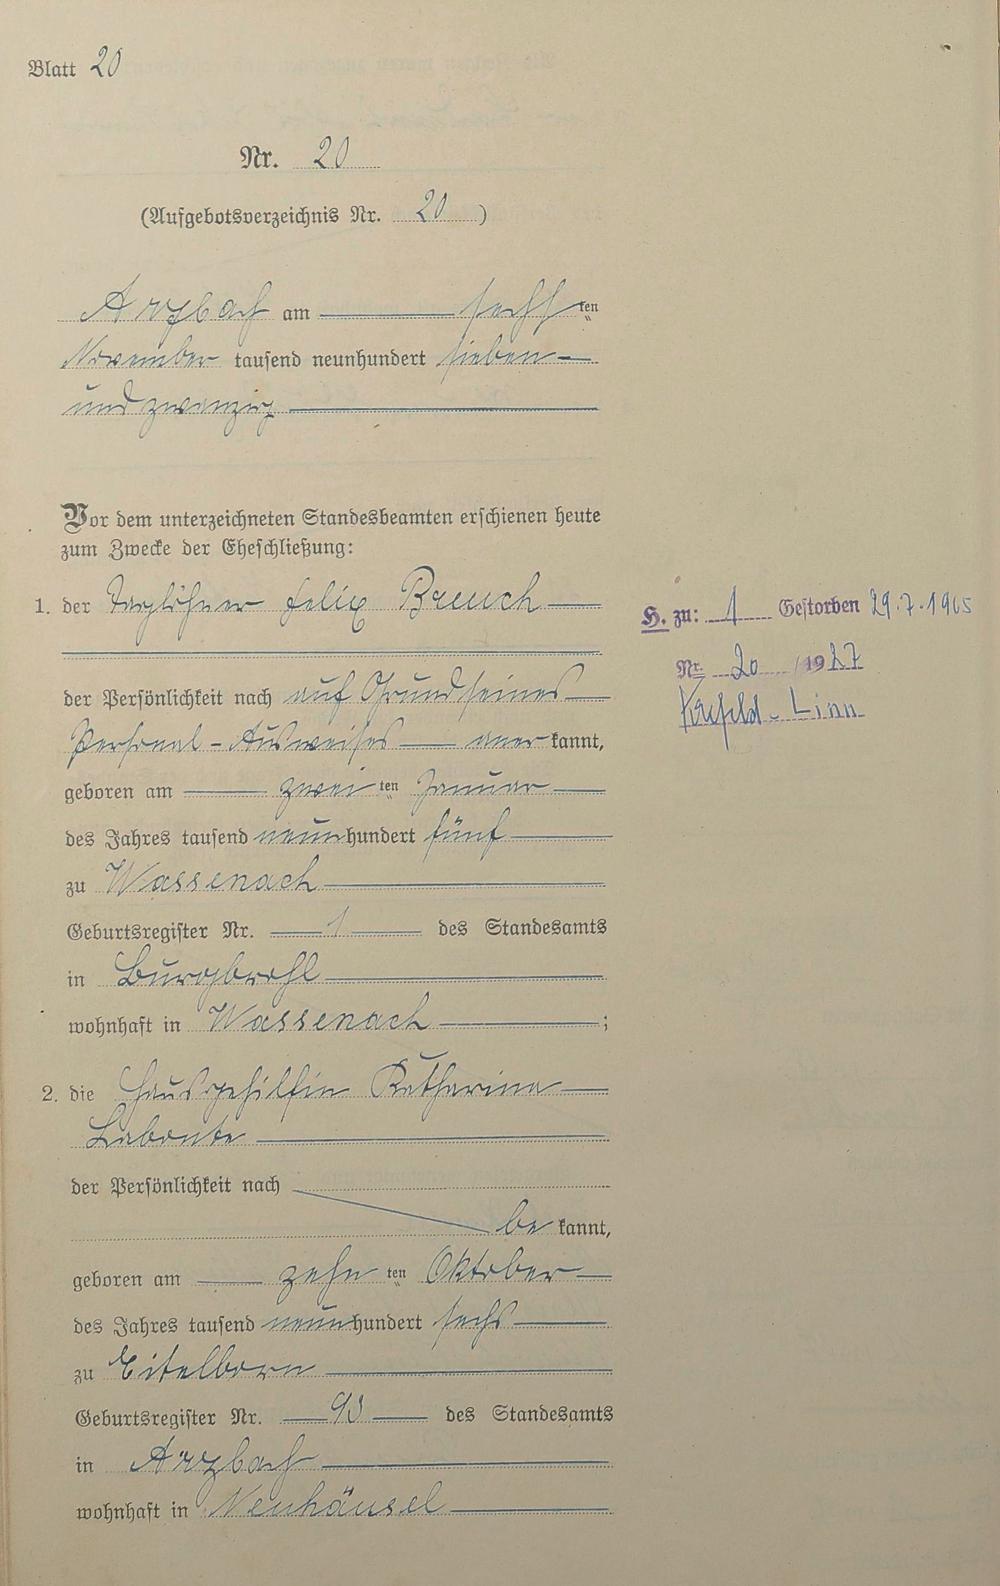 Blatt 20
Nr. 20
(Aufgebotsverzeichnis Nr. 20)
Arzbach am sechsten
November tausend neunhundert sieben-
und zwanzig
Vor dem unterzeichneten Standesbeamten erschienen heute
zum Zwecke der Eheschließung:
1. der Taglöhner Felix Breuch
der Persönlichkeit nach auf Grund seines
Personal-Ausweises anerkannt,
geboren am zweiten Januar
des Jahres tausend neunhundert fünf
zu Wassenach
Geburtsregister Nr. 1 des Standesamts
in Burgbrohl
wohnhaft in Wassenach;
2. die Hausgehilfin Katharina
Labonte
der Persönlichkeit nach
bekannt,
geboren am zehnten Oktober
des Jahres tausend neunhundert sechs
zu Eitelborn
Geburtsregister Nr. 93 des Standesamts
in Arzbach
wohnhaft in Neuhäusel
H. zu: 1 Gestorben 29.7.1965
Nr. 20/1927
Krefeld-Linn